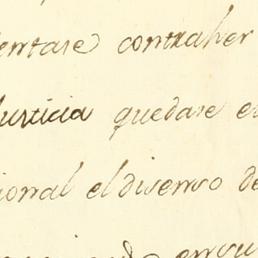 entase contraher
Justicia quedase e
ional el disenso de